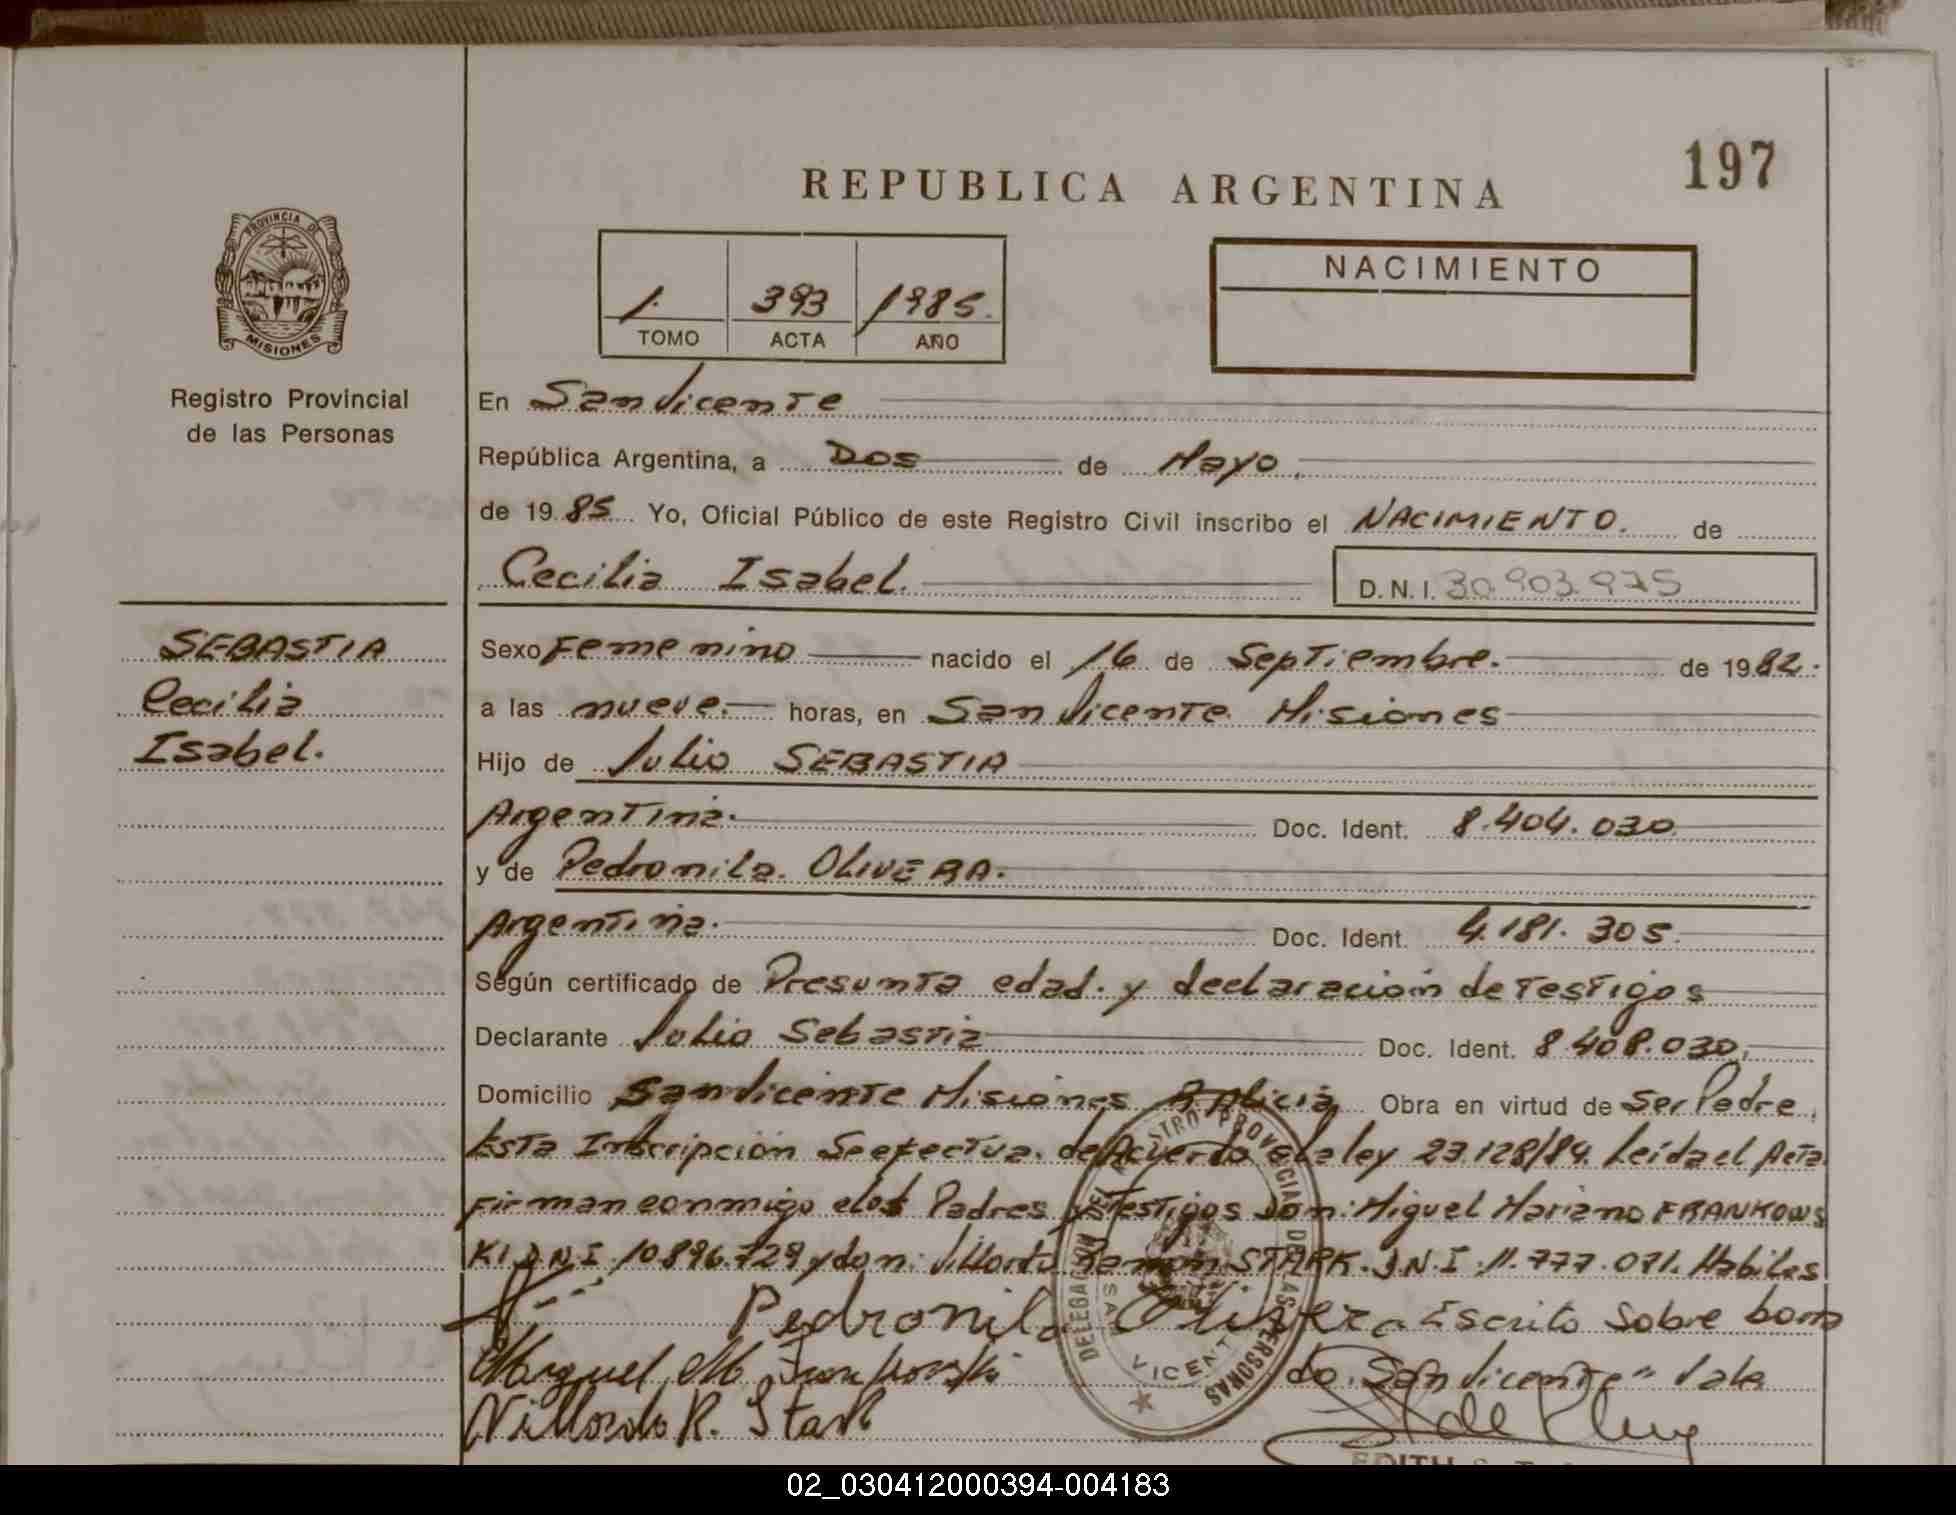 197
REPUBLICA ARGENTINA
PROVINCIA DE
MISIONES
Registro Provincial
de las Personas
1. 393 1985.
TOMO ACTA AÑO
NACIMIENTO
En San Vicente
República Argentina, a Dos de Mayo.
de 1985 Yo, Oficial Público de este Registro Civil inscribo el NACIMIENTO. de
Cecilia Isabel. D.N.I. 30.903.975
SEBASTIA
Cecilia
Isabel.
Sexo Femenino nacido el 16 de Septiembre. de 1982.
a las nueve. horas, en San Vicente Misiones
Hijo de Julio SEBASTIA
Argentina. Doc. Ident. 8.404.030
y de Pedronila. OLIVERA.
Argentina. Doc. Ident. 4.181.305.
Según certificado de Presunta edad. y declaración de Testigos
Declarante Julio Sebastia Doc. Ident. 8.408.030.
Domicilio San Vicente Misiones Alicia Obra en virtud de Ser Padre.
Esta Inscripción Se efectua. de Acuerdo a la ley 23.128/84. Leída el Acta
Firman conmigo elos Padres y Testigos Don: Miguel Mariano FRANKOWS
KI D.N.I. 10.896.729 y don: Villordo Ramon STARK. D.N.I. 11.777.071. Habiles
Pedronila Olivera Escrito Sobre borra
do "San Vicente" Vale
Miguel M. Frankowski
Villordo R. Stark
DELEGACION DEL REGISTRO PROVINCIAL DE LAS PERSONAS
SAN VICENTE
EDITH
02_030412000394-004183